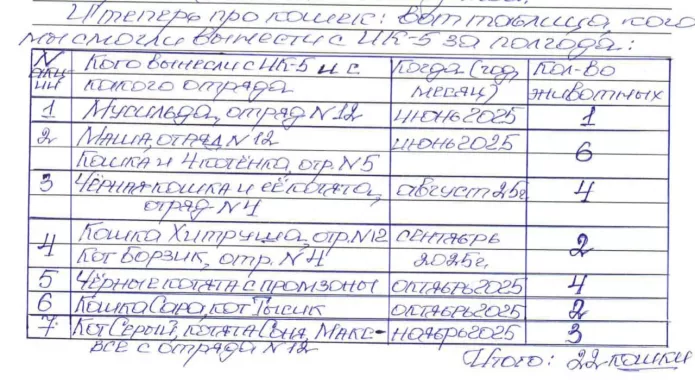 И теперь про кошек: Вот таблица кого
мы смогли вынести с ИК-5 за полгода:
N акции | Кого вынесли с ИК-5 и с какого отряда | Когда (год, месяц) | Кол-во животных
1 | Мусильда, отряд N12 | июнь 2025 | 1
2 | Маша, отряд N12 | июнь 2025 | 6
Кошка и 4 котёнка, отр. N5
3 | Чёрная кошка и её котята, | август 25г. | 4
отряд N4
4 | Кошка Хитруша, отр. N12 | сентябрь | 2
Кот Борзик, отр. N4 | 2025г.
5 | Чёрные котята с промзоны | октябрь 2025 | 4
6 | Кошка Сара, кот Тысик | октябрь 2025 | 2
7 | Кот Серый, котята Соня, Макс- | ноябрь 2025 | 3
все с отряда N12
Итого: 22 кошки